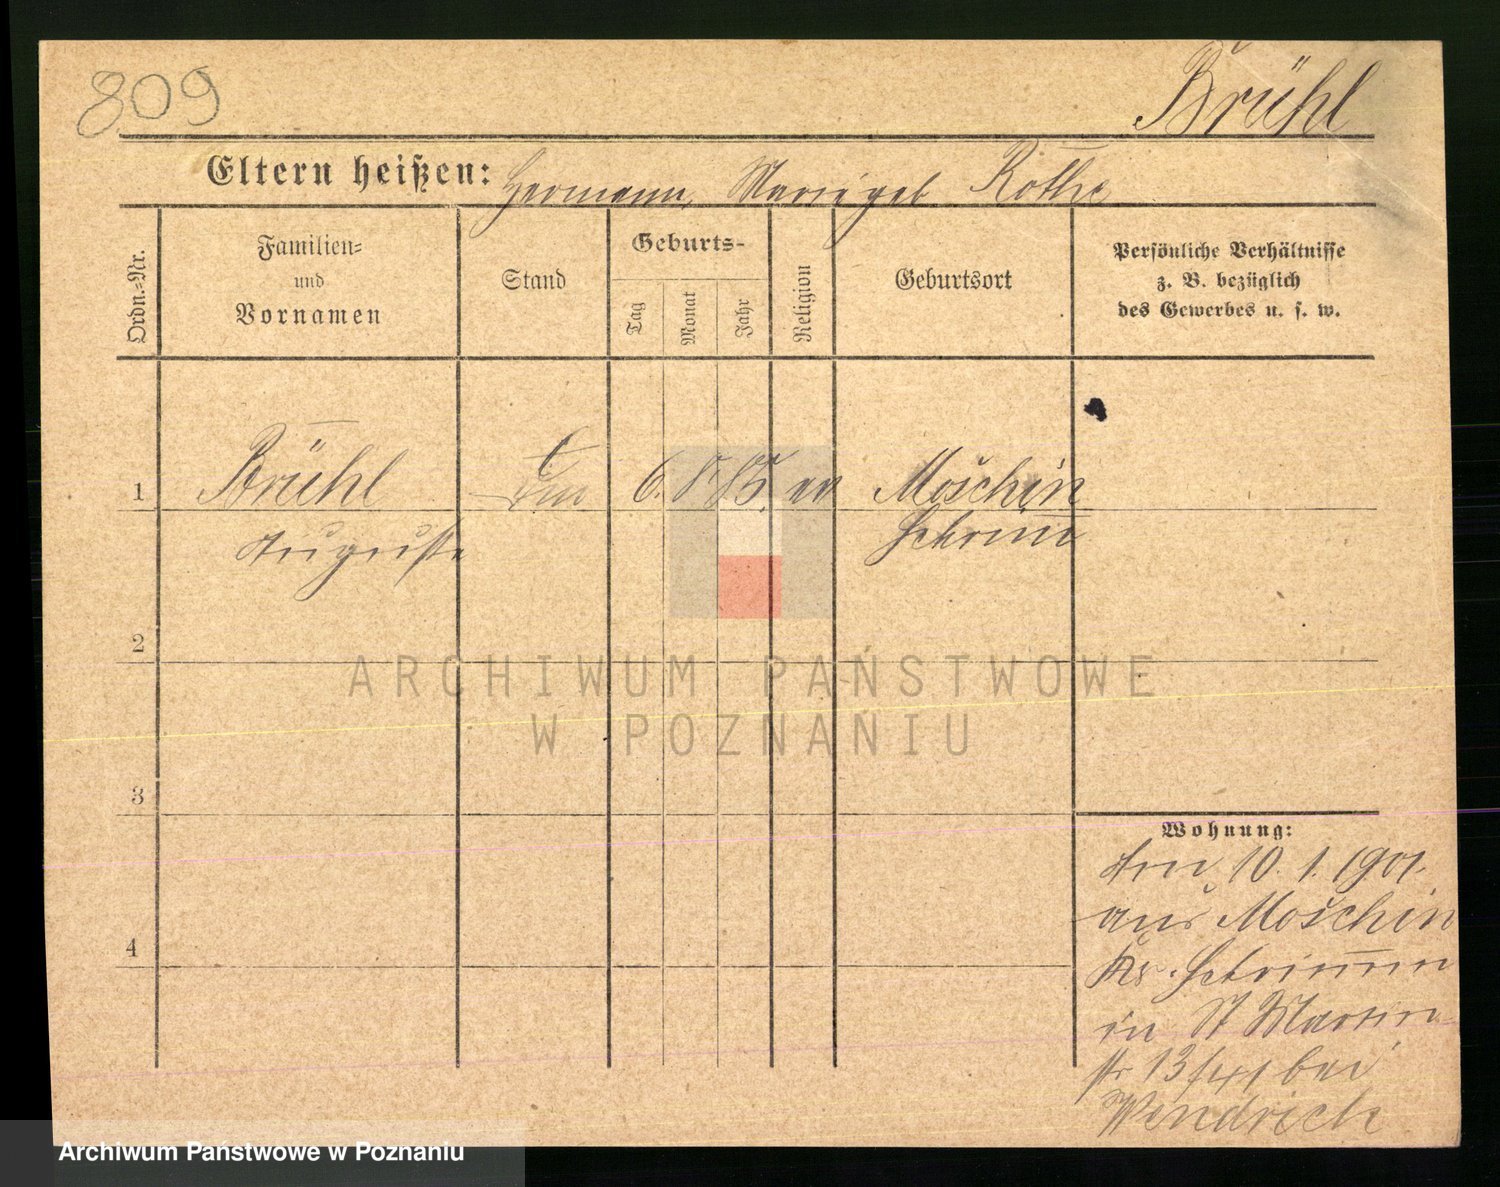 809
Brühl
Eltern heißen: Hermann, Marie geb Röthe
Ordn.-Nr.
Familien-
und
Vornamen
Stand
Geburts-
Tag
Monat
Jahr
Religion
Geburtsort
Persönliche Verhältnisse
z. B. bezüglich
des Gewerbes u. s. w.
1
Brühl
6. 8 85. ev
Moschin
Schrimm
Auguste
2
ARCHIWUM PAŃSTWOWE
W POZNANIU
3
Wohnung:
10. 1. 1901.
aus Moschin
Kr. Schrimm
4
in St Martin
str 13 bei
Wendrich
Archiwum Państwowe w Poznaniu